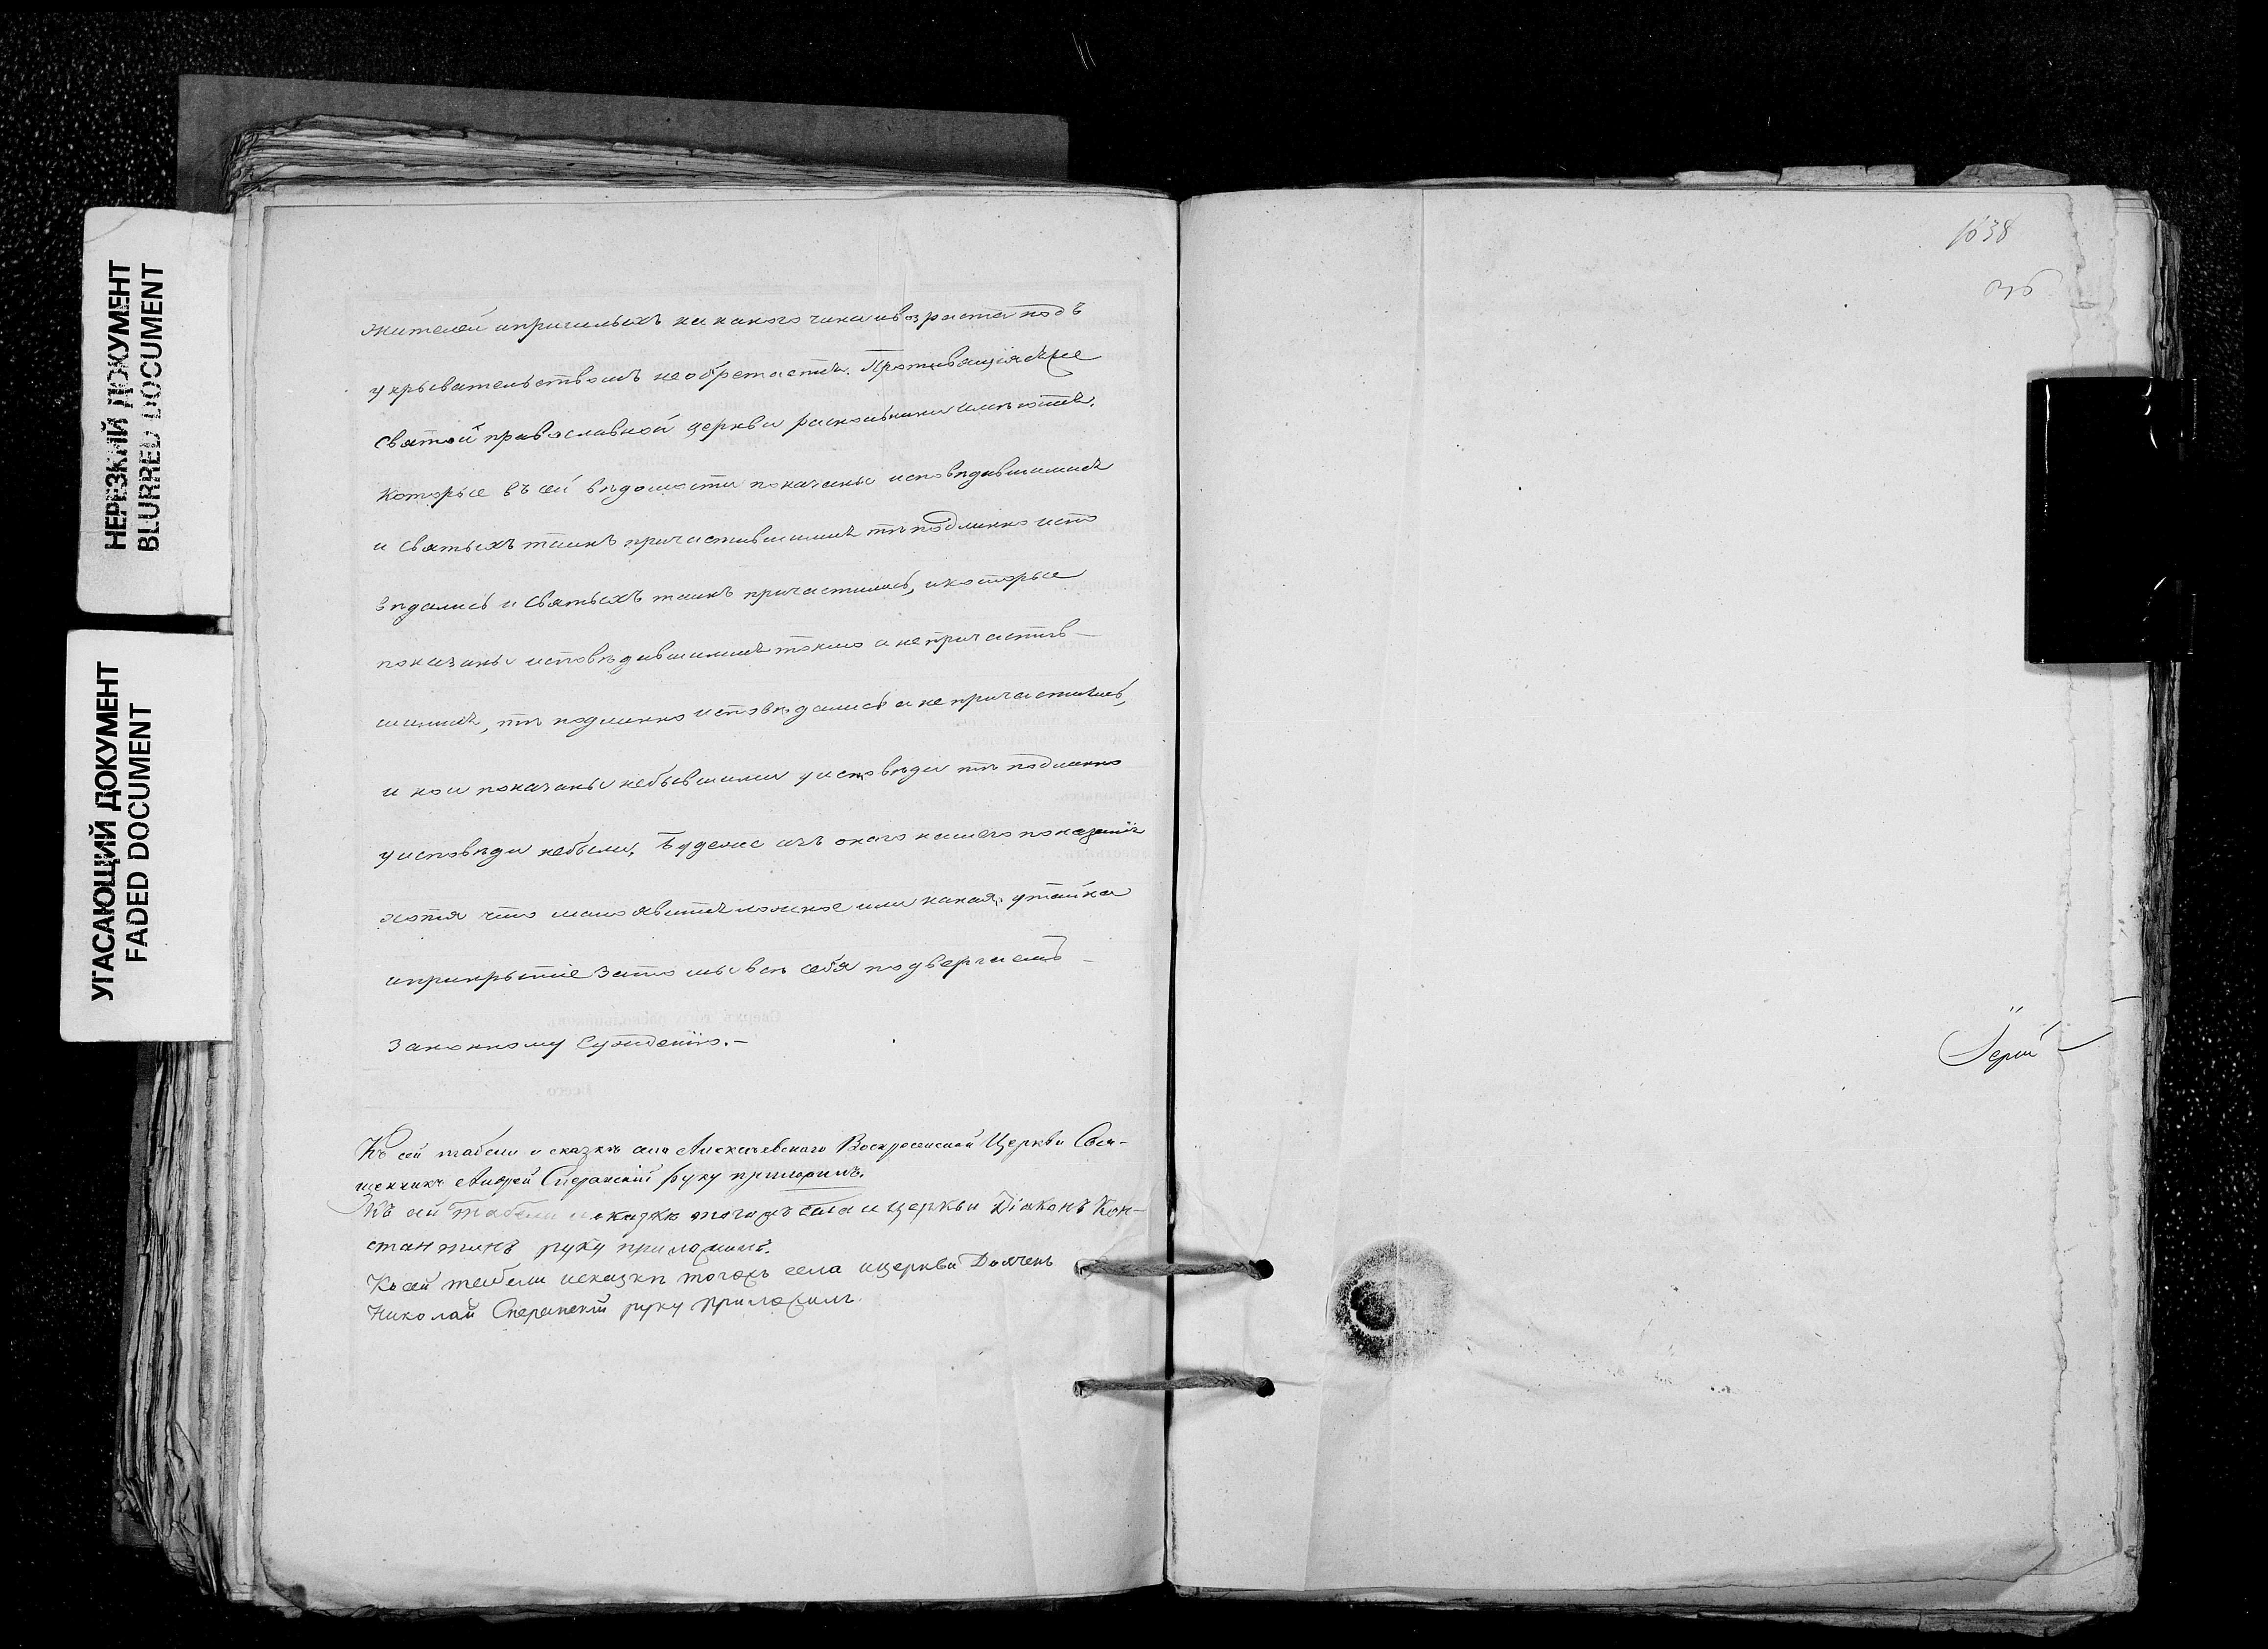 НЕРЕЗКИЙ ДОКУМЕНТ
BLURRED DOCUMENT
УГАСАЮЩИЙ ДОКУМЕНТ
FADED DOCUMENT
жителей ипришлыхъ ни какого чина ивозраста подъ
укрывательствомъ необретается. Противящіяся же
святой православной церкви раскольники имѣются.
Которые въ сей вѣдомости показаны исповѣдавшимися
и святыхъ таинъ причастившимися тѣ подлинно испо
вѣдались и святыхъ таинъ причастились, икоторые
показаны исповѣдавшимися токмо а не причастив-
шимися, тѣ подлинно исповѣдались а не причастились,
и кои показаны небывшими у исповѣди тѣ подлинно
у исповѣди небыли, Будеже изъ онаго нашего показанія
хотя что мало явится ложное или какая утайка
иприкрытіе зато мы всѣ себя подвергаемъ
законному сужденію.-
Къ сей табели и сказкѣ села Воскресенской Церкви Свя-
щенникъ Андрей Сперанскій руку приложилъ.
Къ сей табели искаскѣ тогожъ села и церкви Діаконъ Кон-
стантинъ руку приложилъ.
Къ сей табели исказки тогожъ села ицеркви Дьячекъ
Николай Сперанскій руку приложилъ.
1038
Іерей